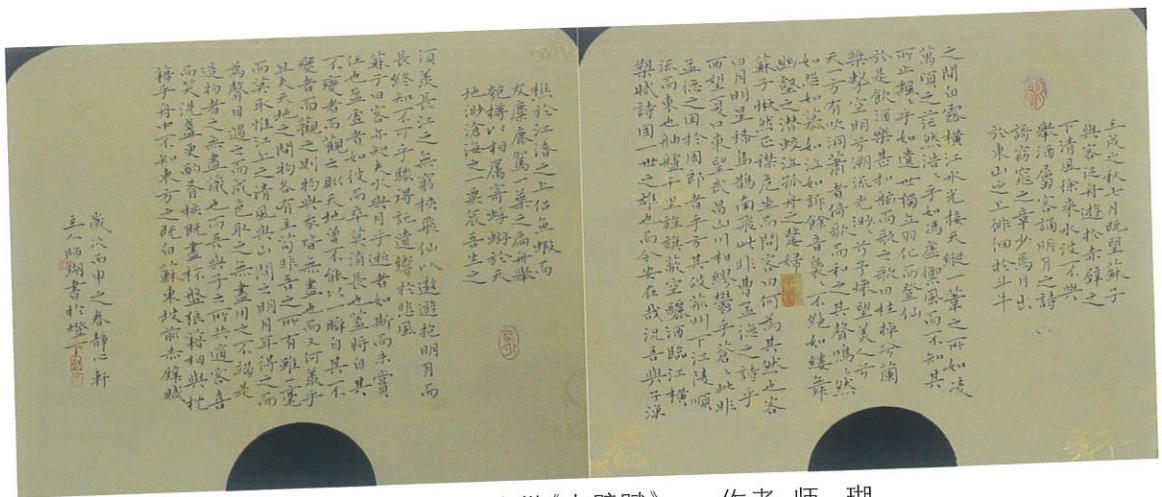 壬戌之秋七月既望蘇子
與客泛舟遊於赤壁之
下清風徐來水波不興
舉酒屬客誦明月之詩
謌窈窕之章少焉月出
於東山之上徘徊於斗牛
之間白露橫江水光接天縱一葦之所如淩
萬頃之茫然浩〻乎如馮虛御風而不知其
所止飄〻乎如遺世獨立羽化而登仙
於是飲酒樂甚扣舷而歌之歌曰桂棹兮蘭
槳擊空明兮溯流光渺〻兮予懷望美人兮
天一方有吹洞簫者倚歌而和之其聲嗚〻然
如怨如慕如泣如訴餘音裊〻不絕如縷舞
幽壑之潛蛟泣孤舟之嫠婦
蘇子愀然正襟危坐而問客曰何為其然也客
曰月明星稀烏鵲南飛此非曹孟德之詩乎
西望夏口東望武昌山川相繆鬱乎蒼〻此非
孟德之困於周郎者乎方其破荊州下江陵順
流而東也舳艫千里旌旗蔽空釃酒臨江橫
槊賦詩固一世之雄也而今安在哉況吾與子漁
樵於江渚之上侶魚蝦而
友麋鹿駕一葉之扁舟舉
匏樽以相屬寄蜉蝣於天
地渺滄海之一粟哀吾生之
須羨長江之無窮挾飛仙以遨遊抱明月而
長終知不可乎驟得託遺響於悲風
蘇子曰客亦知夫水與月乎逝者如斯而未嘗
往也盈虛者如彼而卒莫消長也蓋將自其
不變者而觀之耶天地曾不能以一瞬自其不
變者而觀之則物與我皆無盡也而又何羨乎
且夫天地之間物各有主苟非吾之所有雖一毫
而莫取惟江上之清風與山間之明月耳得之而
為聲目遇之而成色取之無盡用之不竭是
造物者之無盡藏也而吾與子之所共適客喜
而笑洗盞更酌肴核既盡杯盤狼籍相與枕
籍乎舟中不知東方之既白蘇東坡前赤壁賦
歲次丙申之春靜心軒
主人師瑚書於燈下
《赤壁赋》 作者 师 瑚